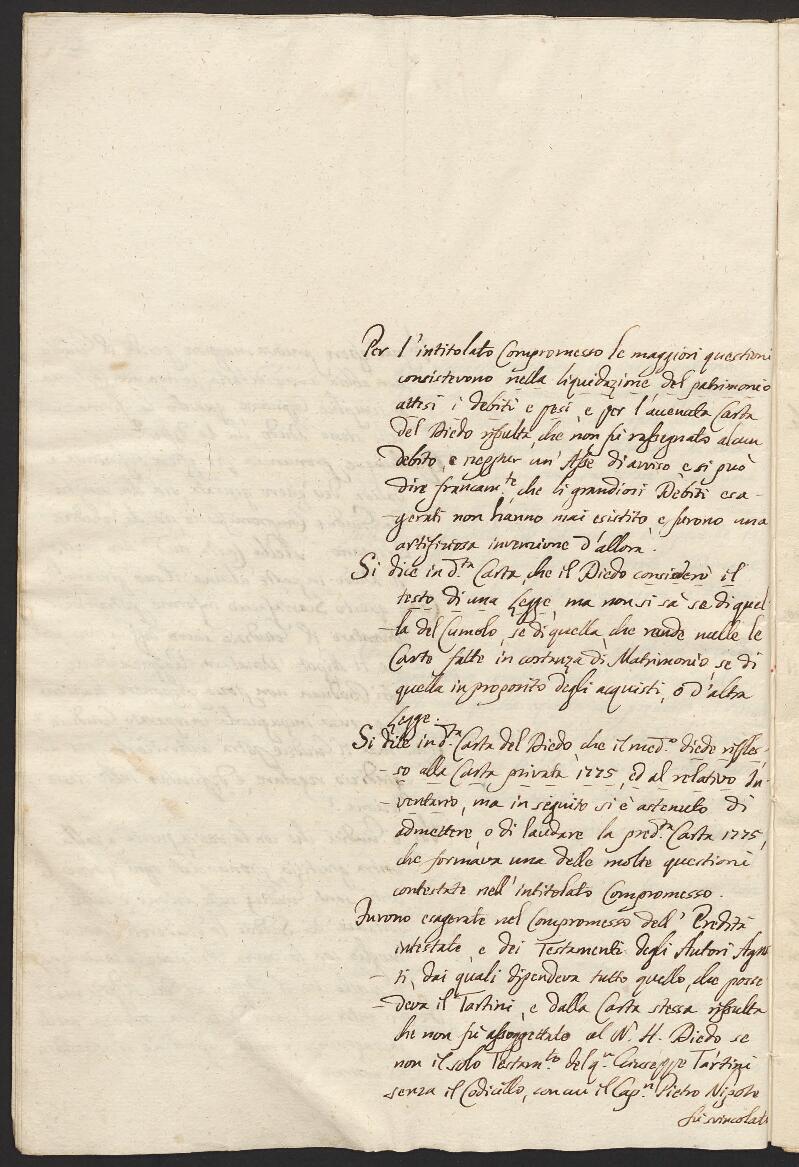 Per l'intitolato Compromesso le maggiori questioni
consistevono nella liquidazione del patrimonio
attesi i debiti e pesi, e per l'accenata Carta
del Diedo rissulta, che non fu rassegnato alcun
debito, e neppur un' Asse di avviso e si può
dire francam.te, che li grandiosi Debiti esa-
gerati non hanno mai esistito, e furono una
artifiziosa invenzione d'allora.
Si dice in d.ta Carta, che il Diedo considerò il
testo di una Legge, ma non si sà se di quel-
la del Cumolo, se di quella, che rende nulle le
Carte fatte in costanza di Matrimonio, se di
quella in proposito degli acquisti, o d'altra
Legge.
Si dice in d.ta Carta del Diedo, che il med.o diedo rifles-
so alla Carta privata 1775, ed al relativo In-
ventario, ma in seguito si è astenuto di
admettere, o di laudare la pred.ta Carta 1775,
che formava una delle molte questioni
contestate nell'intitolato Compromesso.
Furono esagerate nel Compromesso dell' Eredità
intestate, e dei Testamenti degli Autori Agna
ti, dai quali dipendeva tutto quello, che posse
deva il Tartini, e dalla Carta stessa rissulta
che non fu assoggettato al N. H. Diedo se
non il solo Testam.to del q.m Giuseppe Tartini
senza il Codicillo, con cui il Cap.n Pietro Nipote
fu svincolato